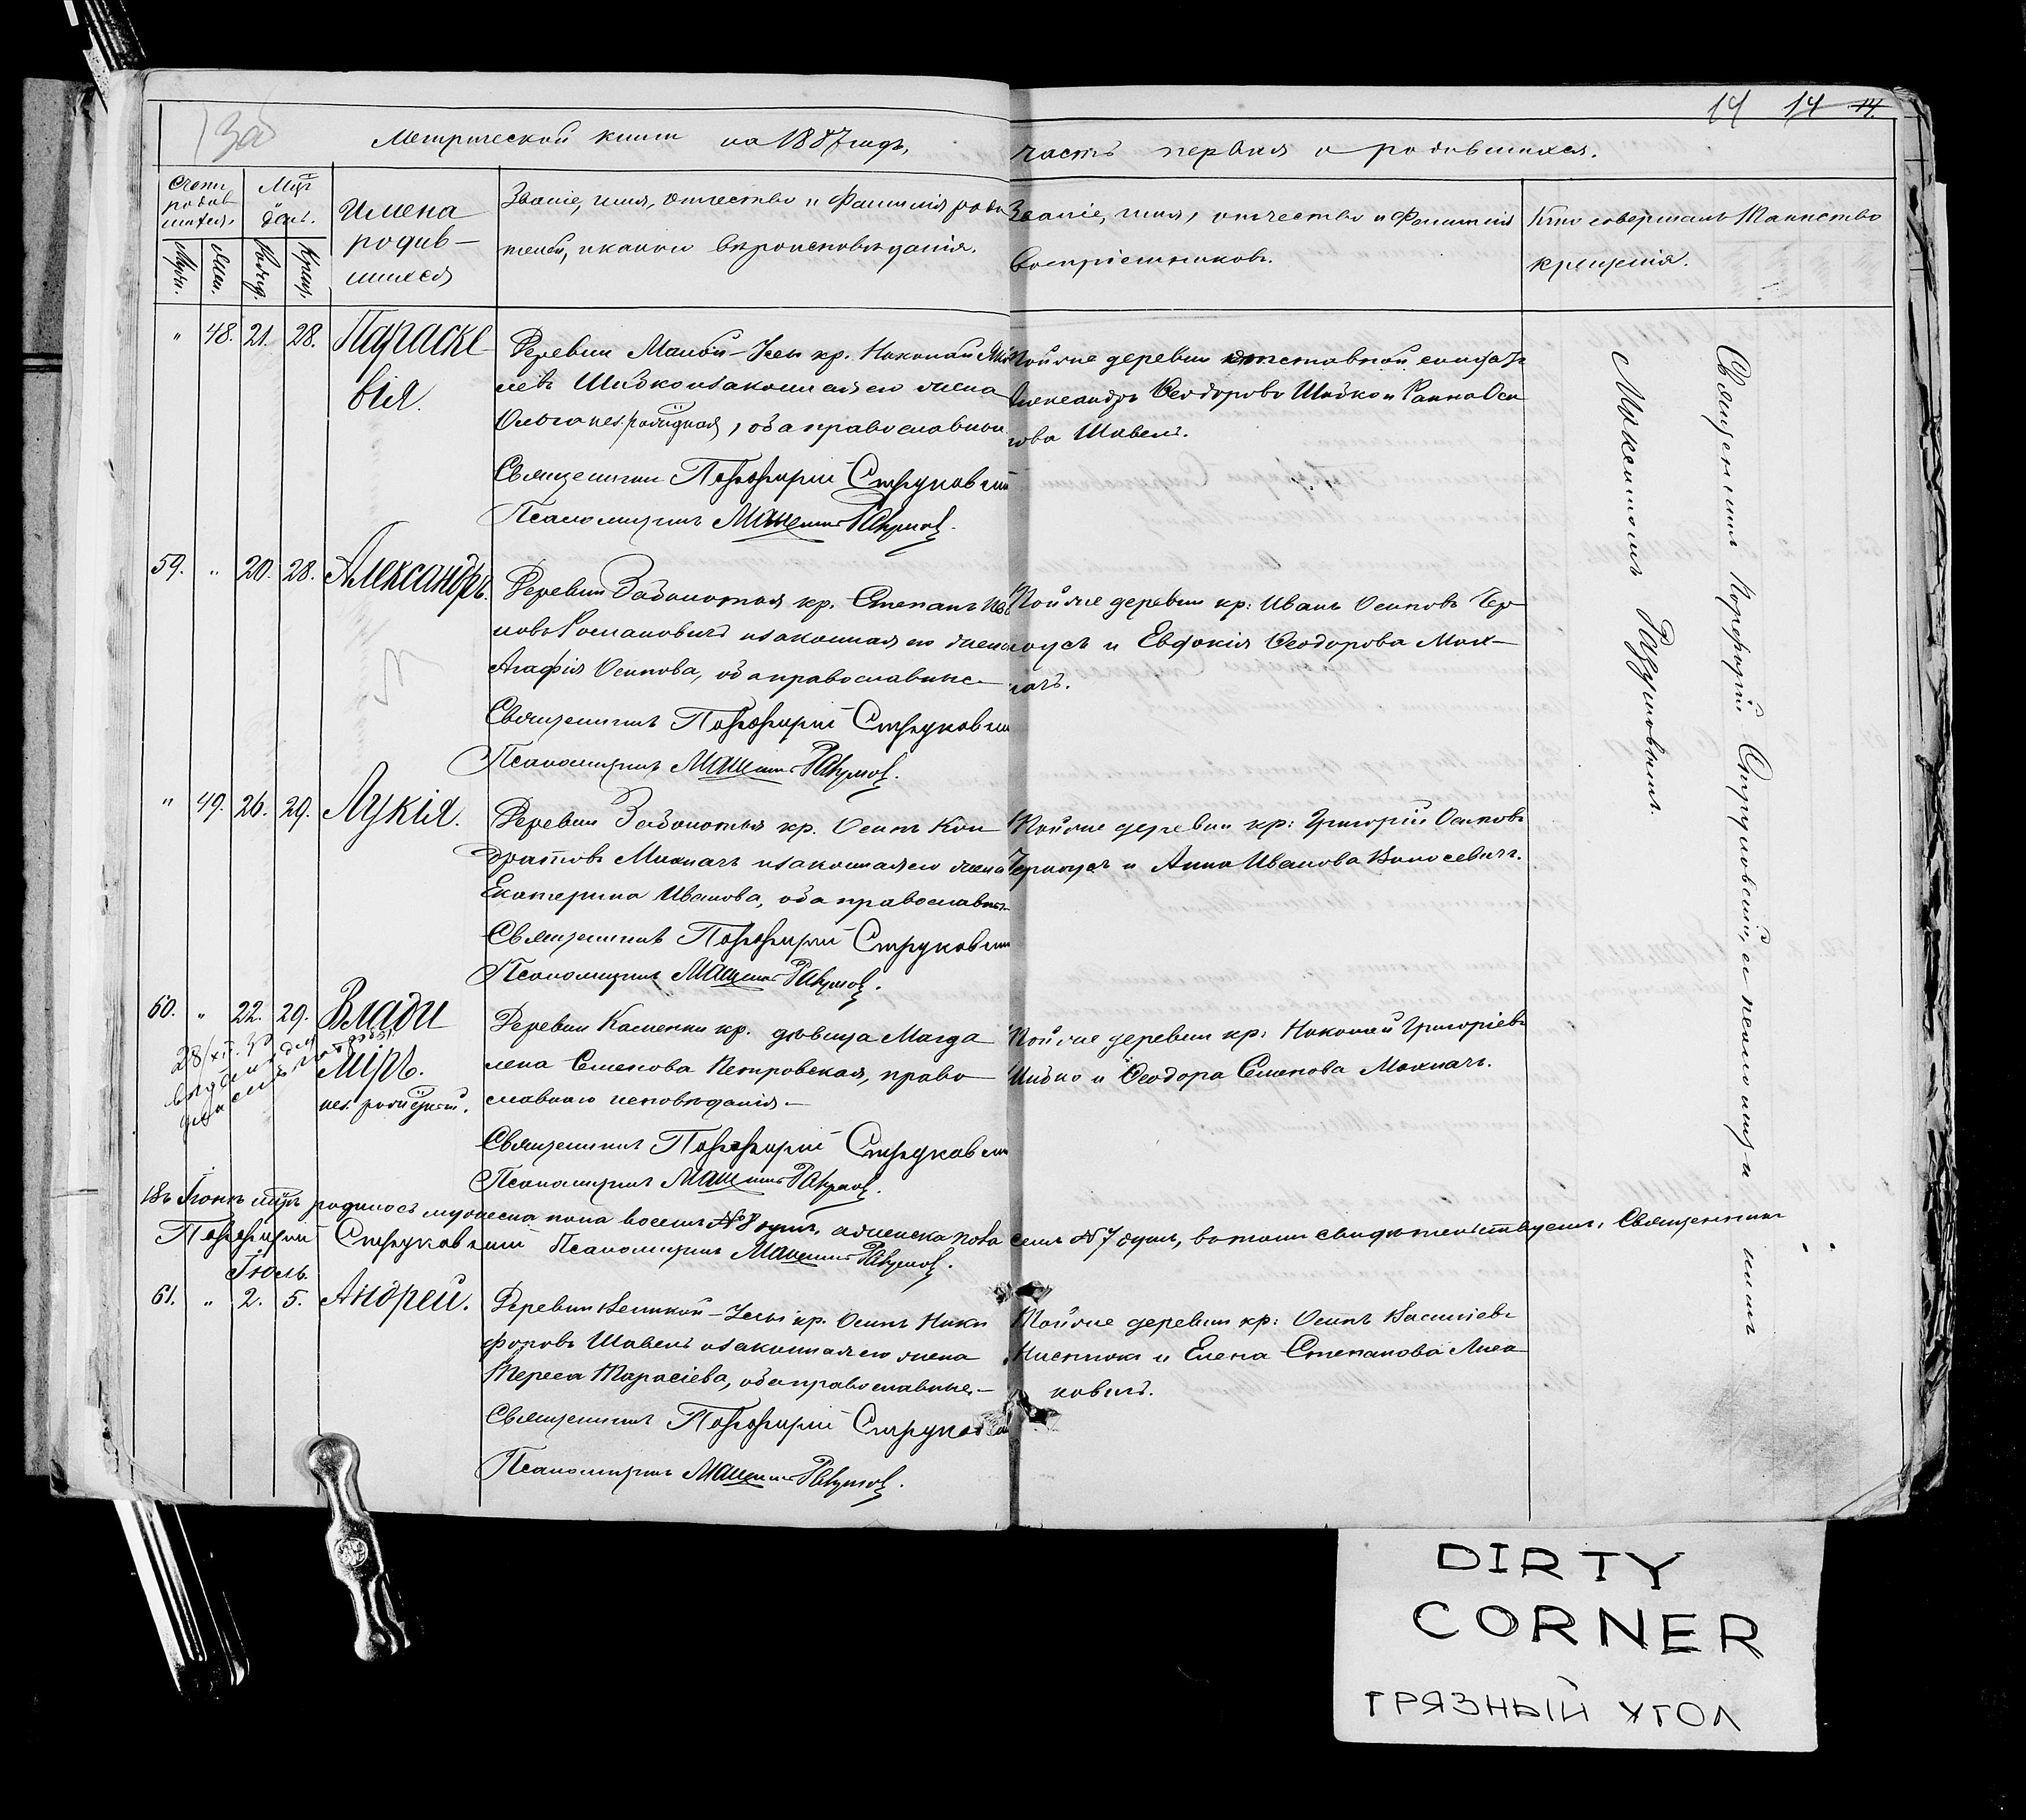 13об
14 14 14
Метрической книги на 1887 годъ, часть первая о родившихся.
Счетъ родив шихся.
Мцъ и день.
Муж.
Жен.
Рожд.
Крещ.
Имена родив- шихся
Званіе, имя, отчество и фамилія роди
телей, и какого вѣроисповѣданія.
Званіе, имя, отчество и фамилія
воспріемниковъ.
Кто совершалъ Таинство
крещенія.
" 48. 21. 28. Параске
вія.
Деревни Малой-Усы кр. Николай
левъ Шидко и законная его жена
Ольга, оба православные
Священникъ Порфирій Струковскій
Псаломщикъ
Той же деревни отставной солдатъ
Александръ Ѳеодоровъ Шидко и Оси
пова Шавель.
59. " 20. 28. Александръ.
Деревни Заболотья кр. Степанъ
новъ Романовичъ и законная его жена
Агафія Осипова, оба православные
Священникъ Порфирій Струковскій
Псаломщикъ
Той же деревни кр: Иванъ Осиповъ Чер
ноусъ и Евдокія Ѳеодорова Мох-
начъ.
" 49. 26. 29. Лукія.
Деревни Заболотья кр. Осипъ Кон
дратовъ Мохначъ и законная его жена
Екатерина Иванова, оба православные
Священникъ Порфирій Струковскій
Псаломщикъ
Той же деревни кр: Григорій Осиповъ
Черноусъ и Анна Иванова
60. " 22. 29. Влади
міръ.
нез. рожденный.
Деревни Каменки кр. дѣвица Магда
лена Семенова Петровская, право
славнаго исповѣданія.—
Священникъ Порфирій Струковскій
Псаломщикъ
Той же деревни кр: Николай Григоріевъ
Шидко и Ѳеодора Семенова Мохначъ.
Въ Іюнѣ мцѣ родилось мужеска пола восемь №8 душъ, а женска пола семь №7 душъ, въ томъ свидѣтельствуемъ: Священникъ
Порфирій Струковскій Псаломщикъ
Іюль.
61. " 2. 5. Андрей.
Деревни Великой-Усы кр. Осипъ Ники
форовъ Шавель и законная его жена
Тереса Тарасіева, оба православные.—
Священникъ Порфирій Струковскій
Псаломщикъ
Той же деревни кр: Осипъ Василіевъ
и Елена Степанова
ковичъ.
Священникъ Порфирій Струковскій, съ псаломщикомъ
DIRTY
CORNER
ГРЯЗНЫЙ УГОЛ